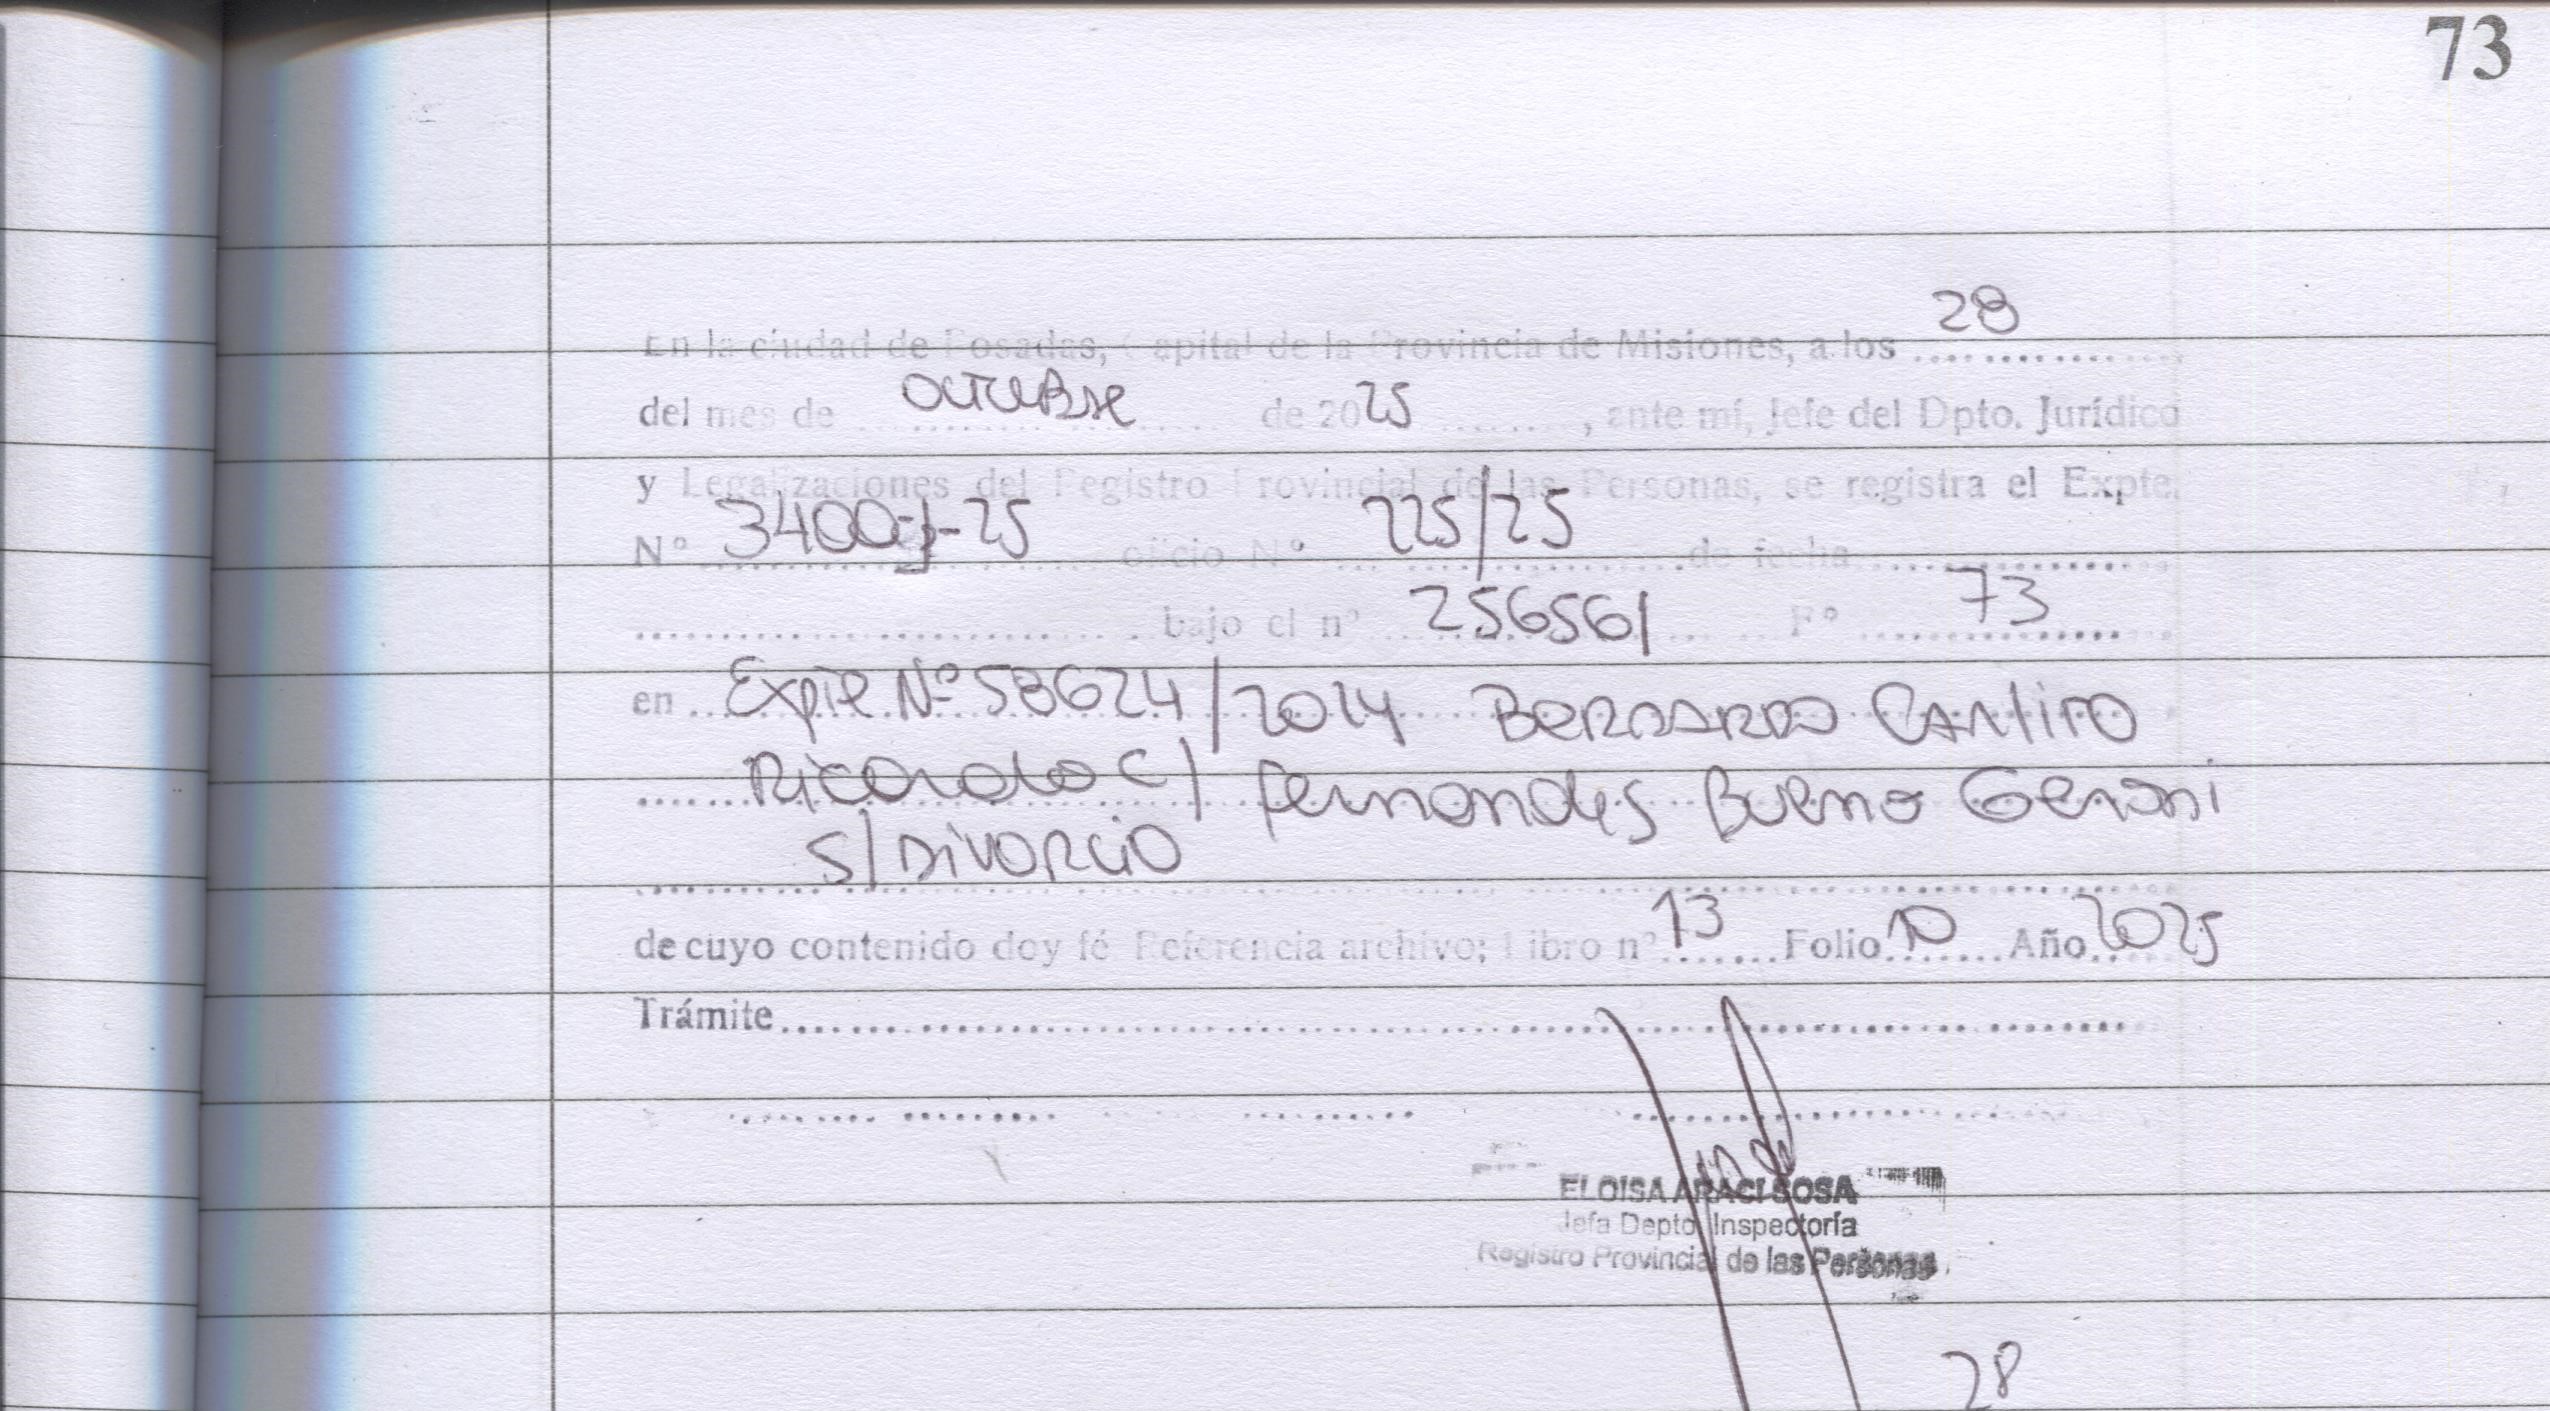 73
En la ciudad de Posadas, Capital de la Provincia de Misiones, a los 28
del mes de octubre de 2025, ante mí, Jefe del Dpto. Jurídico
y Legalizaciones del Registro Provincial de las Personas, se registra el Expte.
Nº 3400-J-25 oficio Nº 225/25 de fecha
bajo el nº 256561 Fº 73
en Expte Nº 58624/2014 Bernardo
Ricardo c/ Fernandes Bueno Geroni
s/ Divorcio
de cuyo contenido doy fé Referencia archivo; Libro nº 13 Folio 10 Año 2025
Trámite
ELOISA ARACI SOSA
Jefa Depto Inspectoría
Registro Provincial de las Personas
28